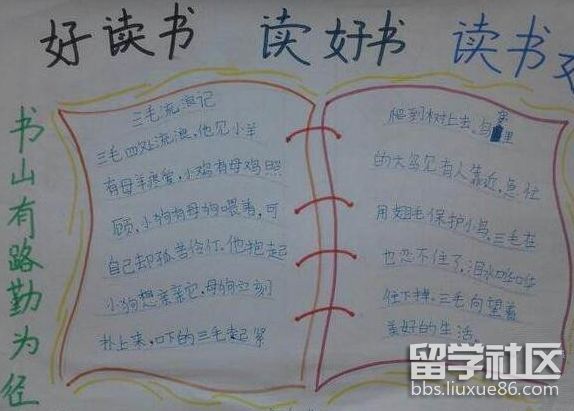 好读书 读好书 读书
书山有路勤为径
三毛流浪记
三毛四处流浪，他见小羊
有母羊疼爱，小鸡有母鸡照
顾，小狗有母狗喂着，可
自己却孤苦伶仃。他抱起
小狗想亲亲它，母狗立刻
扑上来，吓的三毛赶紧
爬到树上去，鸟巢里
的大鸟见有人靠近，急忙
用翅毛保护小鸟，三毛在
也忍不住了，泪水哗哗
往下掉，三毛向望着
美好的生活
留学社区
bbs.liuxue86.com